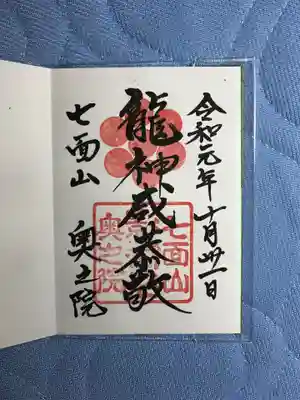 令和元年十月卅一日
龍神咸恭敬
七面山
奥之院
七面山
奥之院